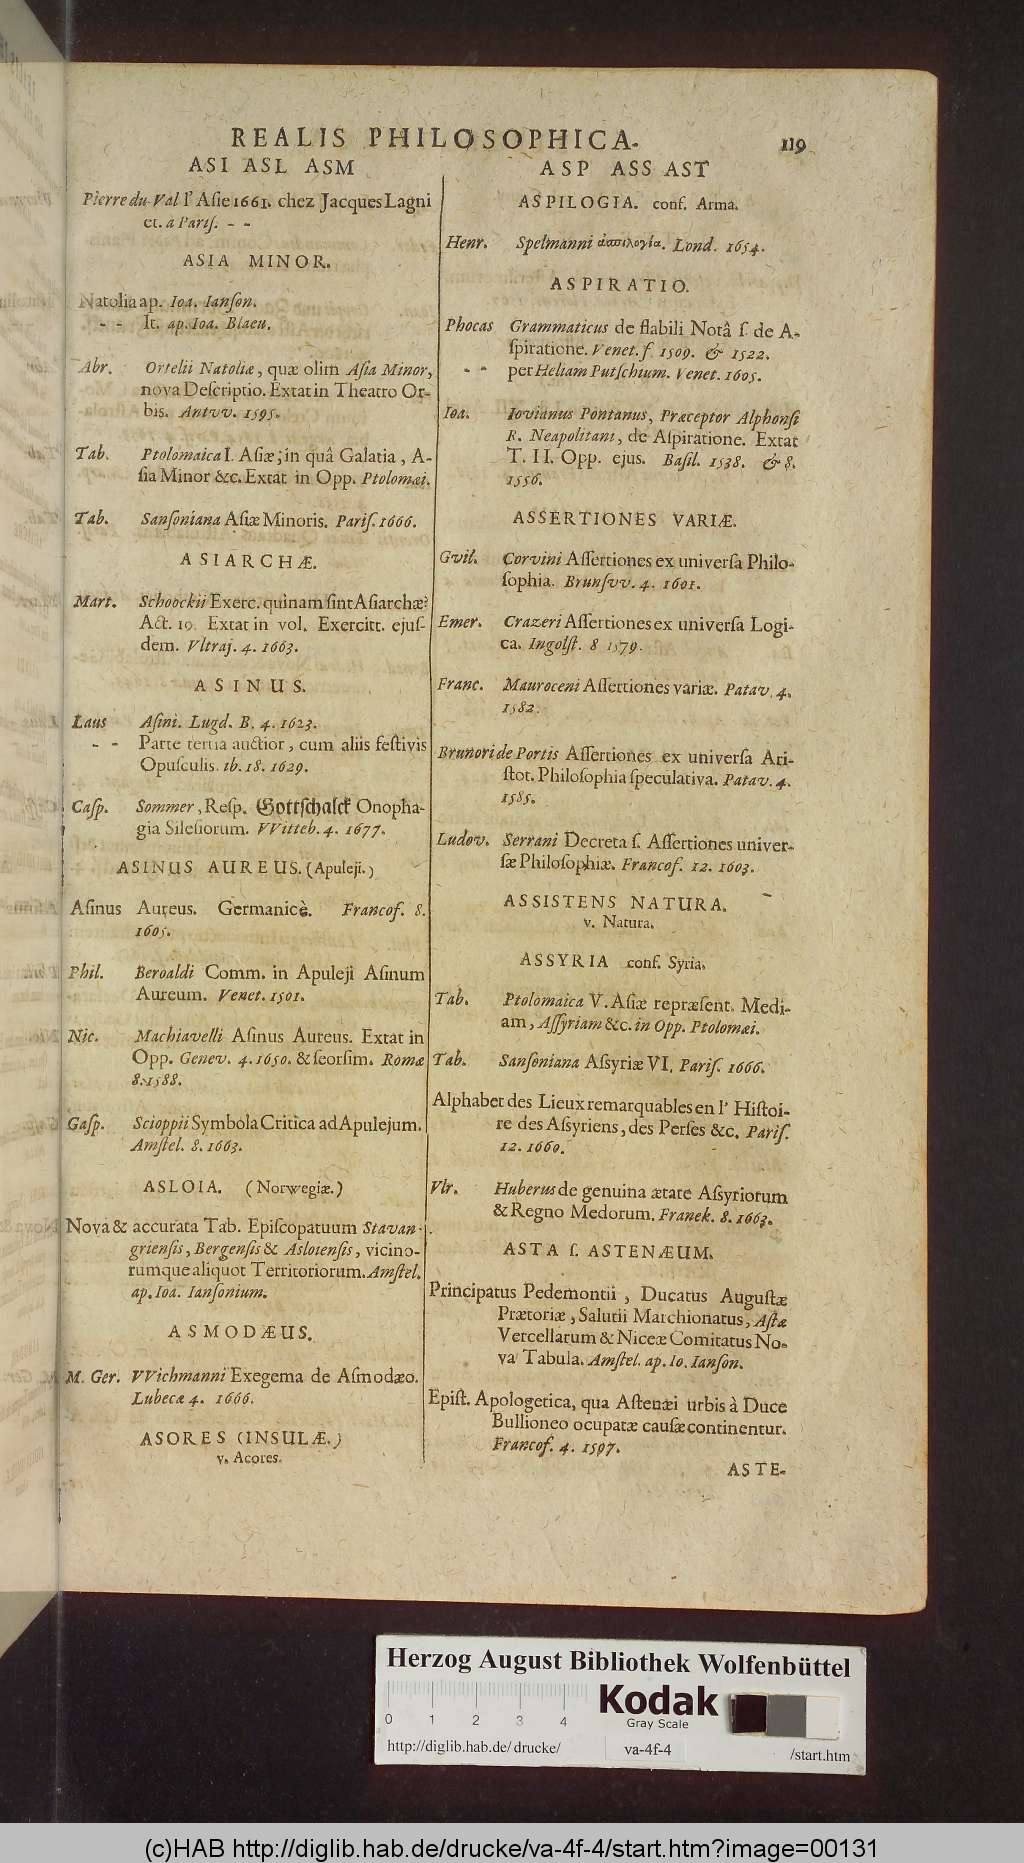 REALIS PHILOSOPHICA. 119
ASI ASL ASM
Pierre du Val l' Aſie 1661. chez Jacques Lagni
et. a Pariſ. - -
ASIA MINOR.
Natolia ap. Ioa. Ianſon.
- - It. ap. Ioa. Blaeu.
Abr. Ortelii Natoliæ, quæ olim Aſia Minor,
nova Deſcriptio. Extat in Theatro Or-
bis. Antvv. 1595.
Tab. Ptolomaica I. Aſiæ; in quâ Galatia, A-
ſia Minor &c. Extat in Opp. Ptolomæi.
Tab. Sanſoniana Aſiæ Minoris. Pariſ. 1666.
ASIARCHÆ.
Mart. Schoockii Exerc. quinam ſint Aſiarchæ?
Act. 10. Extat in vol. Exercitt. ejuſ-
dem. Vltraj. 4. 1663.
ASINUS.
Laus Aſini. Lugd. B. 4. 1623.
- - Parte tertia auctior, cum aliis feſtivis
Opuſculis. ib. 18. 1629.
Caſp. Sommer, Reſp. Gottſchalck Onopha-
gia Sileſiorum. VVitteb. 4. 1677.
ASINUS AUREUS. (Apuleji.)
Aſinus Aureus. Germanicè. Francof. 8.
1605.
Phil. Beroaldi Comm. in Apuleji Aſinum
Aureum. Venet. 1501.
Nic. Machiavelli Aſinus Aureus. Extat in
Opp. Genev. 4. 1650. & ſeorſim. Romæ
8. 1588.
Gaſp. Scioppii Symbola Critica ad Apulejum.
Amſtel. 8. 1663.
ASLOIA. (Norwegiæ.)
Nova & accurata Tab. Epiſcopatuum Stavan-
grienſis, Bergenſis & Asloienſis, vicino-
rumque aliquot Territoriorum. Amſtel.
ap. Ioa. Ianſonium.
ASMODÆUS.
M. Ger. VVichmanni Exegema de Aſmodæo.
Lubecæ 4. 1666.
ASORES (INSULÆ.)
v. Acores.
ASP ASS AST
ASPILOGIA. conf. Arma.
Henr. Spelmanni ἀσπιλογία. Lond. 1654.
ASPIRATIO.
Phocas Grammaticus de flabili Notâ ſ. de A-
ſpiratione. Venet. f. 1509. & 1522.
- - per Heliam Putſchium. Venet. 1605.
Ioa. Iovianus Pontanus, Præceptor Alphonſi
R. Neapolitani, de Aſpiratione. Extat
T. II. Opp. ejus. Baſil. 1538. & 8.
1556.
ASSERTIONES VARIÆ.
Gvil. Corvini Aſſertiones ex univerſa Philo-
ſophia. Brunſvv. 4. 1601.
Emer. Crazeri Aſſertiones ex univerſa Logi-
ca. Ingolſt. 8 1579.
Franc. Mauroceni Aſſertiones variæ. Patav. 4.
1582.
Brunori de Portis Aſſertiones ex univerſa Ari-
ſtot. Philoſophia ſpeculativa. Patav. 4.
1585.
Ludov. Serrani Decreta ſ. Aſſertiones univer-
ſæ Philoſophiæ. Francof. 12. 1603.
ASSISTENS NATURA.
v. Natura.
ASSYRIA conf. Syria.
Tab. Ptolomaica V. Aſiæ repræſent. Medi-
am, Aſſyriam &c. in Opp. Ptolomæi.
Tab. Sanſoniana Aſsyriæ VI. Pariſ. 1666.
Alphabet des Lieux remarquables en l' Hiſtoi-
re des Aſsyriens, des Perſes &c. Pariſ.
12. 1660.
Vlr. Huberus de genuina ætate Aſsyriorum
& Regno Medorum. Franek. 8. 1663.
ASTA ſ. ASTENÆUM.
Principatus Pedemontii, Ducatus Auguſtæ
Prætoriæ, Salutii Marchionatus, Aſtæ
Vercellarum & Niceæ Comitatus No-
va Tabula. Amſtel. ap. Io. Ianſon.
Epiſt. Apologetica, qua Aſtenæi urbis à Duce
Bullioneo ocupatæ cauſæ continentur.
Francof. 4. 1597.
ASTE-
Herzog August Bibliothek Wolfenbüttel
0 1 2 3 4
Kodak
Gray Scale
http://diglib.hab.de/drucke/ va-4f-4 /start.htm
(c)HAB http://diglib.hab.de/drucke/va-4f-4/start.htm?image=00131